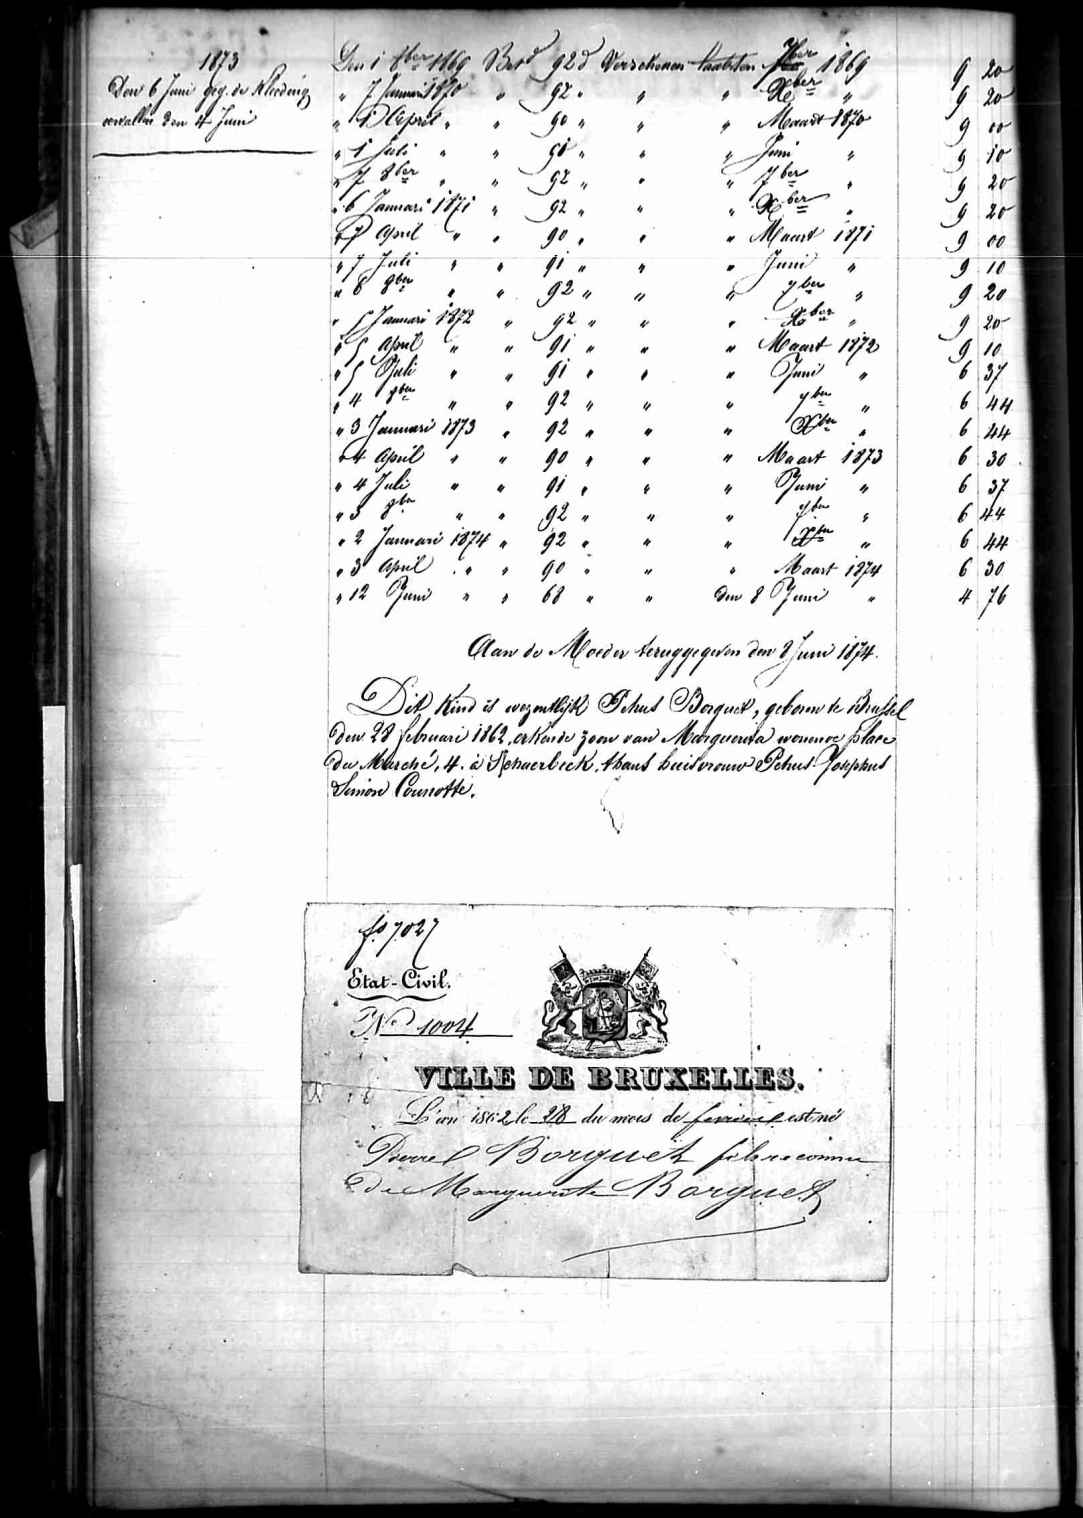 1873
Den 6 Juni geg. de Kleeding
vervallen den 4 Juni
Den 1 8ber 1869 Bet.d 92d Verschenen laatsten 7ber 1869 9 20
" 7 Januari 1870 " 92 " " " Xber " 9 20
" 1 April " " 90 " " " Maart 1870 9 00
" 1 Juli " " 91 " " " Juni " 9 10
" 7 8ber " " 92 " " " 7ber " 9 20
" 6 Januari 1871 " 92 " " " Xber " 9 20
" 7 April " " 90 " " " Maart 1871 9 00
" 7 Juli " " 91 " " " Juni " 9 10
" 8 8ber " " 92 " " " 7ber " 9 20
" 5 Januari 1872 " 92 " " " Xber " 9 20
" 5 April " " 91 " " " Maart 1872 9 10
" 5 Juli " " 91 " " " Juni " 6 37
" 4 8ber " " 92 " " " 7ber " 6 44
" 3 Januari 1873 " 92 " " " Xber " 6 44
" 4 April " " 90 " " " Maart 1873 6 30
" 4 Juli " " 91 " " " Juni " 6 37
" 3 8ber " " 92 " " " 7ber " 6 44
" 2 Januari 1874 " 92 " " " Xber " 6 44
" 3 April " " 90 " " " Maart 1874 6 30
" 12 Juni " " 68 " " den 8 Juni " 4 76
Aan de Moeder teruggegeven den 8 Juni 1874.
Dit Kind is wezentlijk Petrus Borguet, geboren te Brussel
den 28 februari 1862, erkende zoon van Marguerita wonende place
du Marché, 4. à Schaerbeek, thans huisvrouw Petrus Josephus
Simon Counotte.
fo 7027
Etat-Civil.
No 1004
VILLE DE BRUXELLES.
L'an 1862 le 28 du mois de février est né
Pierre Borguet fils reconnu
de Marguerite Borguet